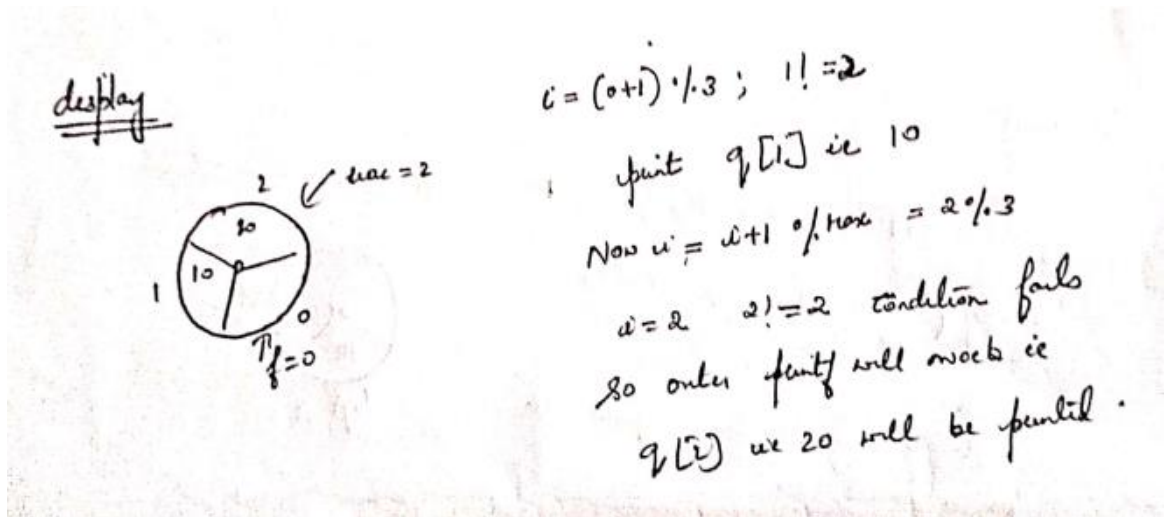 display
2
rear = 2
20
10
1
0
f=0
i = (0+1) % 3 ; 1! =2
print q[1] ie 10
Now i = i+1 % max = 2 % 3
i = 2 2!=2 condition fails
so outer printf will work ie
q[2] ie 20 will be printed.